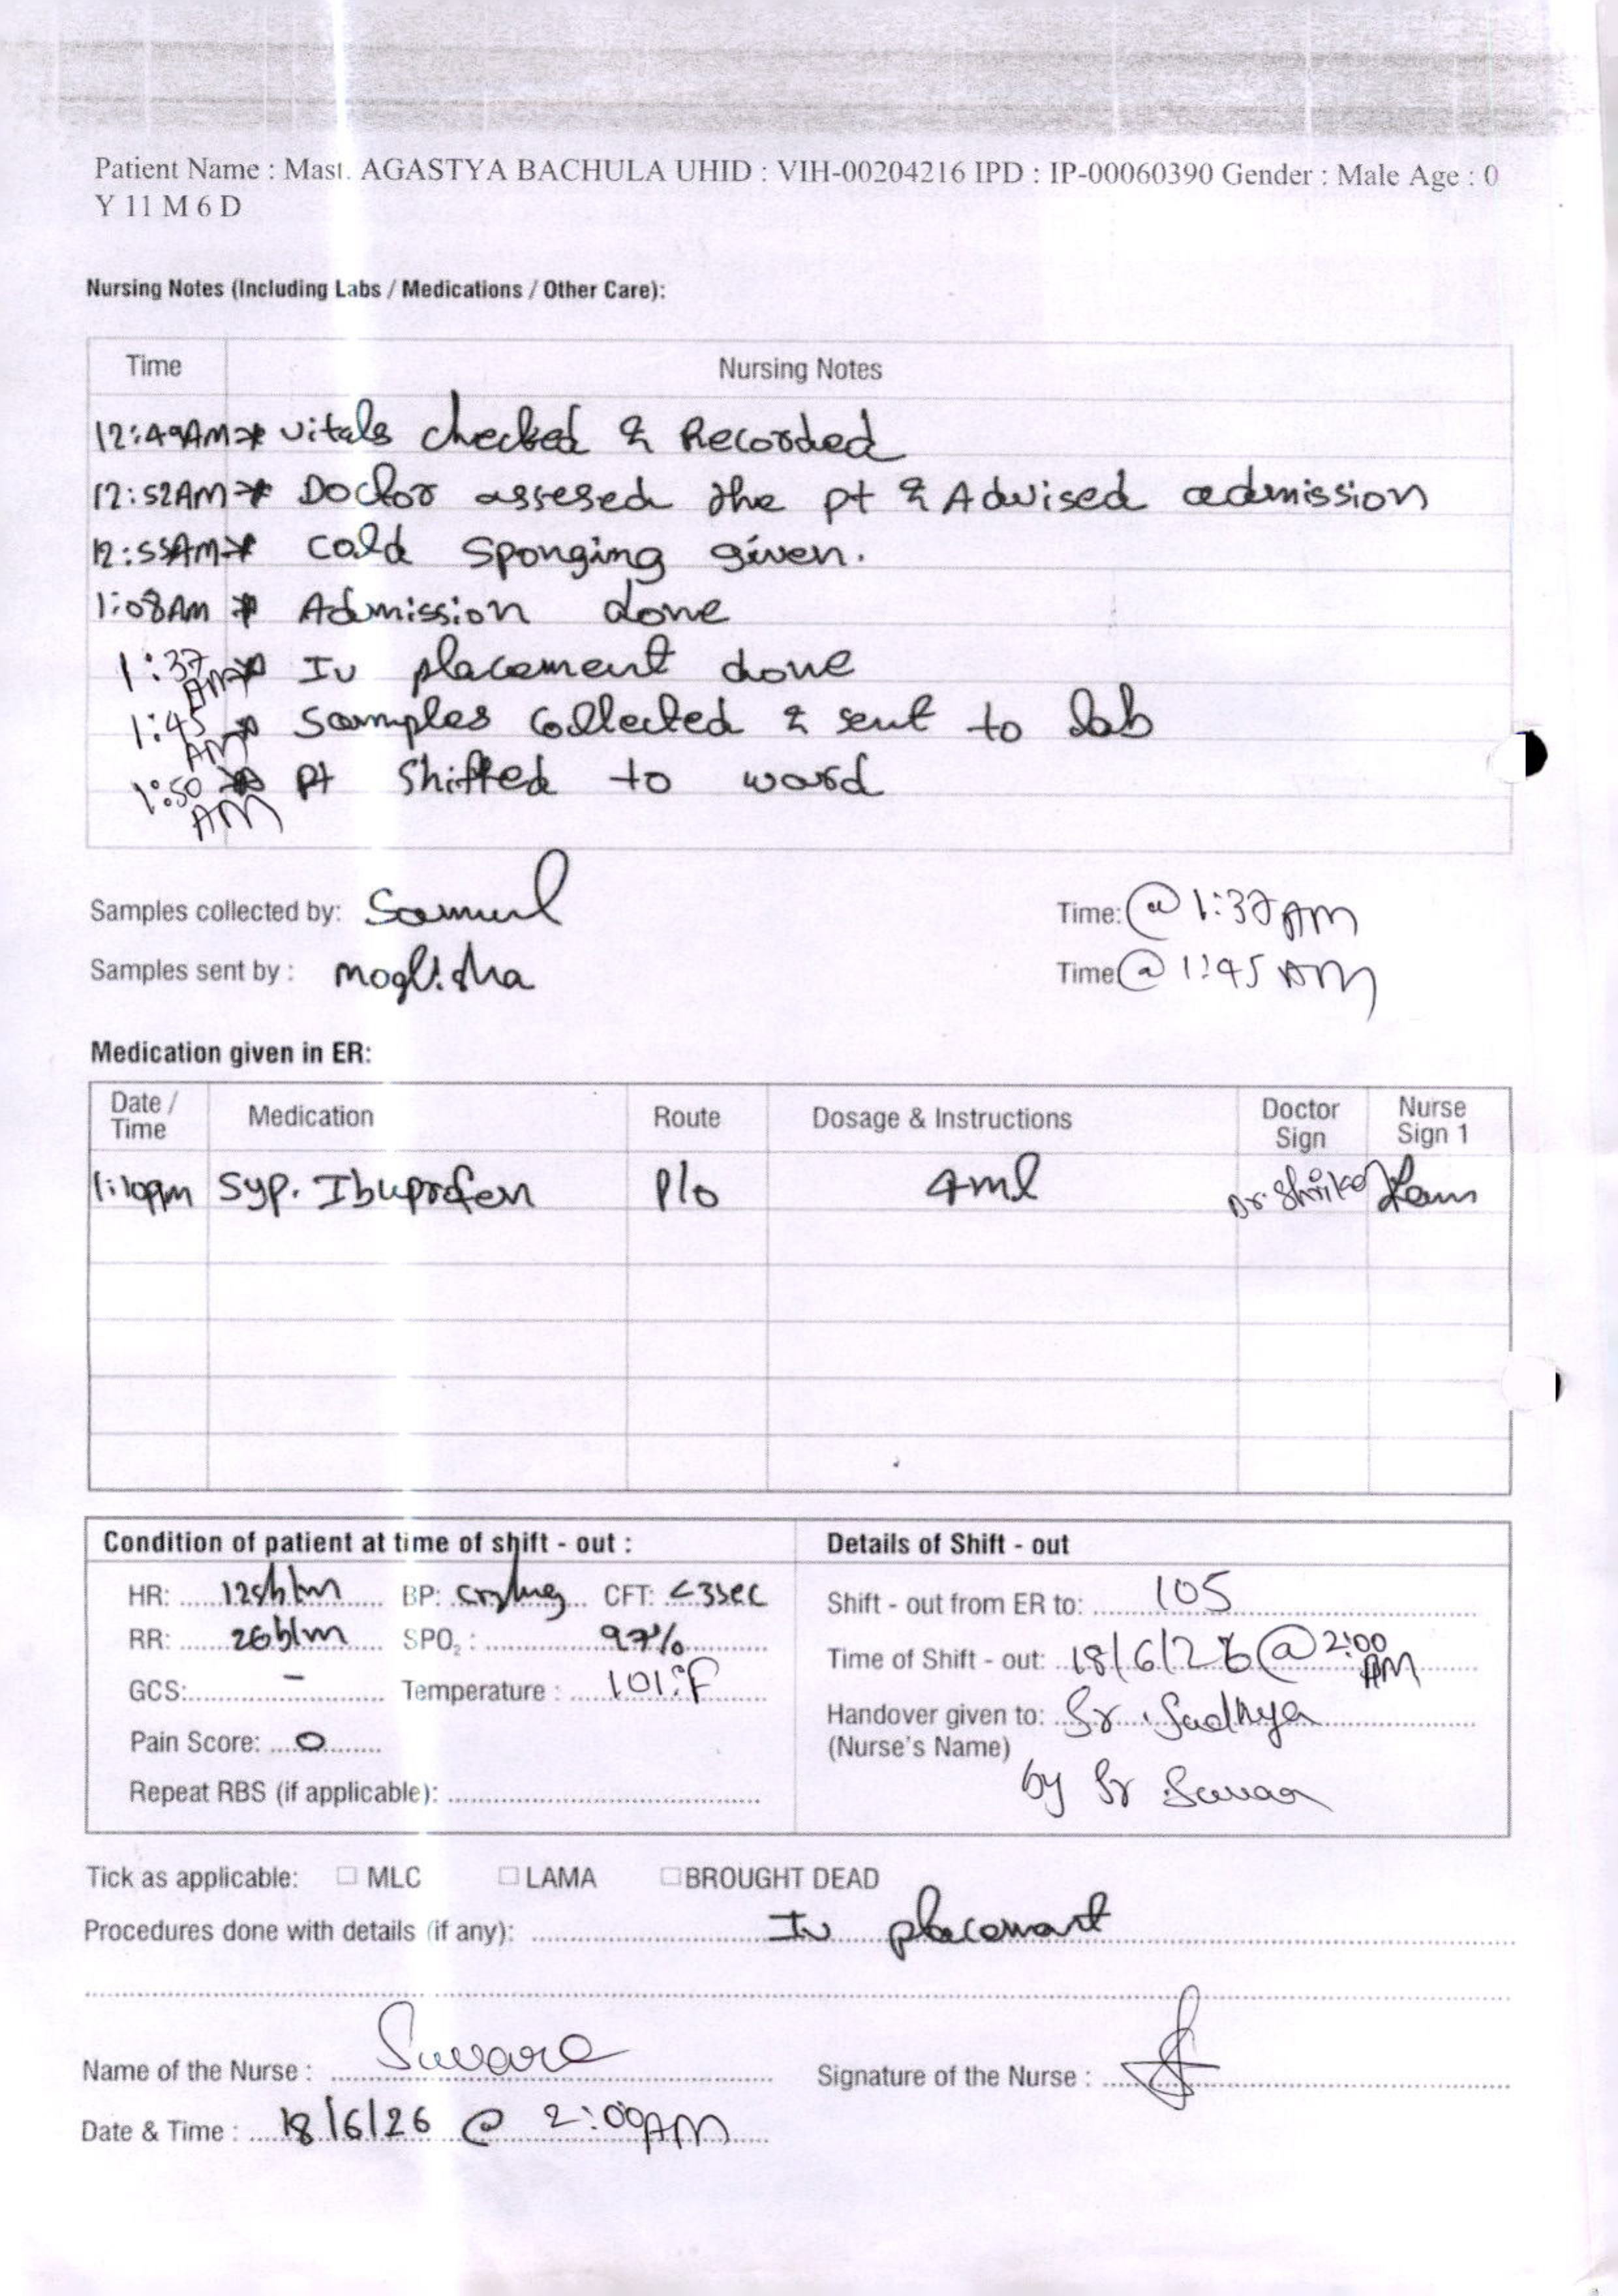 Patient Name : Mast. AGASTYA BACHULA UHID : VIH-00204216 IPD : IP-00060390 Gender : Male Age : 0
Y 11 M 6 D
Nursing Notes (Including Labs / Medications / Other Care):
Time Nursing Notes
12:49AM * vitals checked & Recorded
12:52AM * Doctor assesed the pt & Advised admission
12:55AM * cold sponging given.
1:08AM * Admission done
1:37 AM * IV placement done
1:45 AM * Samples collected & sent to lab
1:50 AM * pt shifted to ward
Samples collected by: Time: @ 1:37 AM
Samples sent by : Time: @ 1:45 AM
Medication given in ER:
Date / Time Medication Route Dosage & Instructions Doctor Sign Nurse Sign 1
Syp. Ibuprofen P/o 4ml
Condition of patient at time of shift - out : Details of Shift - out
HR: BP: CFT: <3sec Shift - out from ER to: 105
RR: 26b/m SPO2 : 97% Time of Shift - out: 18/6/26 @ 2:00 AM
GCS: - Temperature : 101°F
Handover given to: Sr.
Pain Score: 0 (Nurse's Name)
by Sr
Repeat RBS (if applicable):
Tick as applicable: MLC LAMA BROUGHT DEAD
Procedures done with details (if any): IV placement
Name of the Nurse : Signature of the Nurse :
Date & Time : 18/6/26 @ 2:00AM